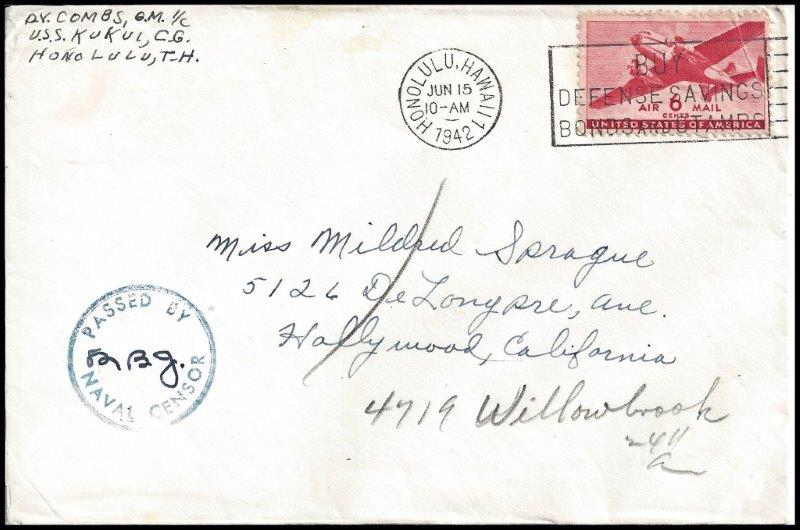 D.V. COMBS, G.M. 1/C
U.S.S. KUKUI, C.G.
HONOLULU, T-H.
HONOLULU, HAWAII 1
JUN 15
10-AM
1942
BUY
DEFENSE SAVINGS
BONDS AND STAMPS
AIR 6 MAIL
CENTS
UNITED STATES OF AMERICA
Miss Mildred Sprague
5126 De Longpre, Ave.
Hollywood, California
4719 Willowbrook
PASSED BY
NAVAL CENSOR